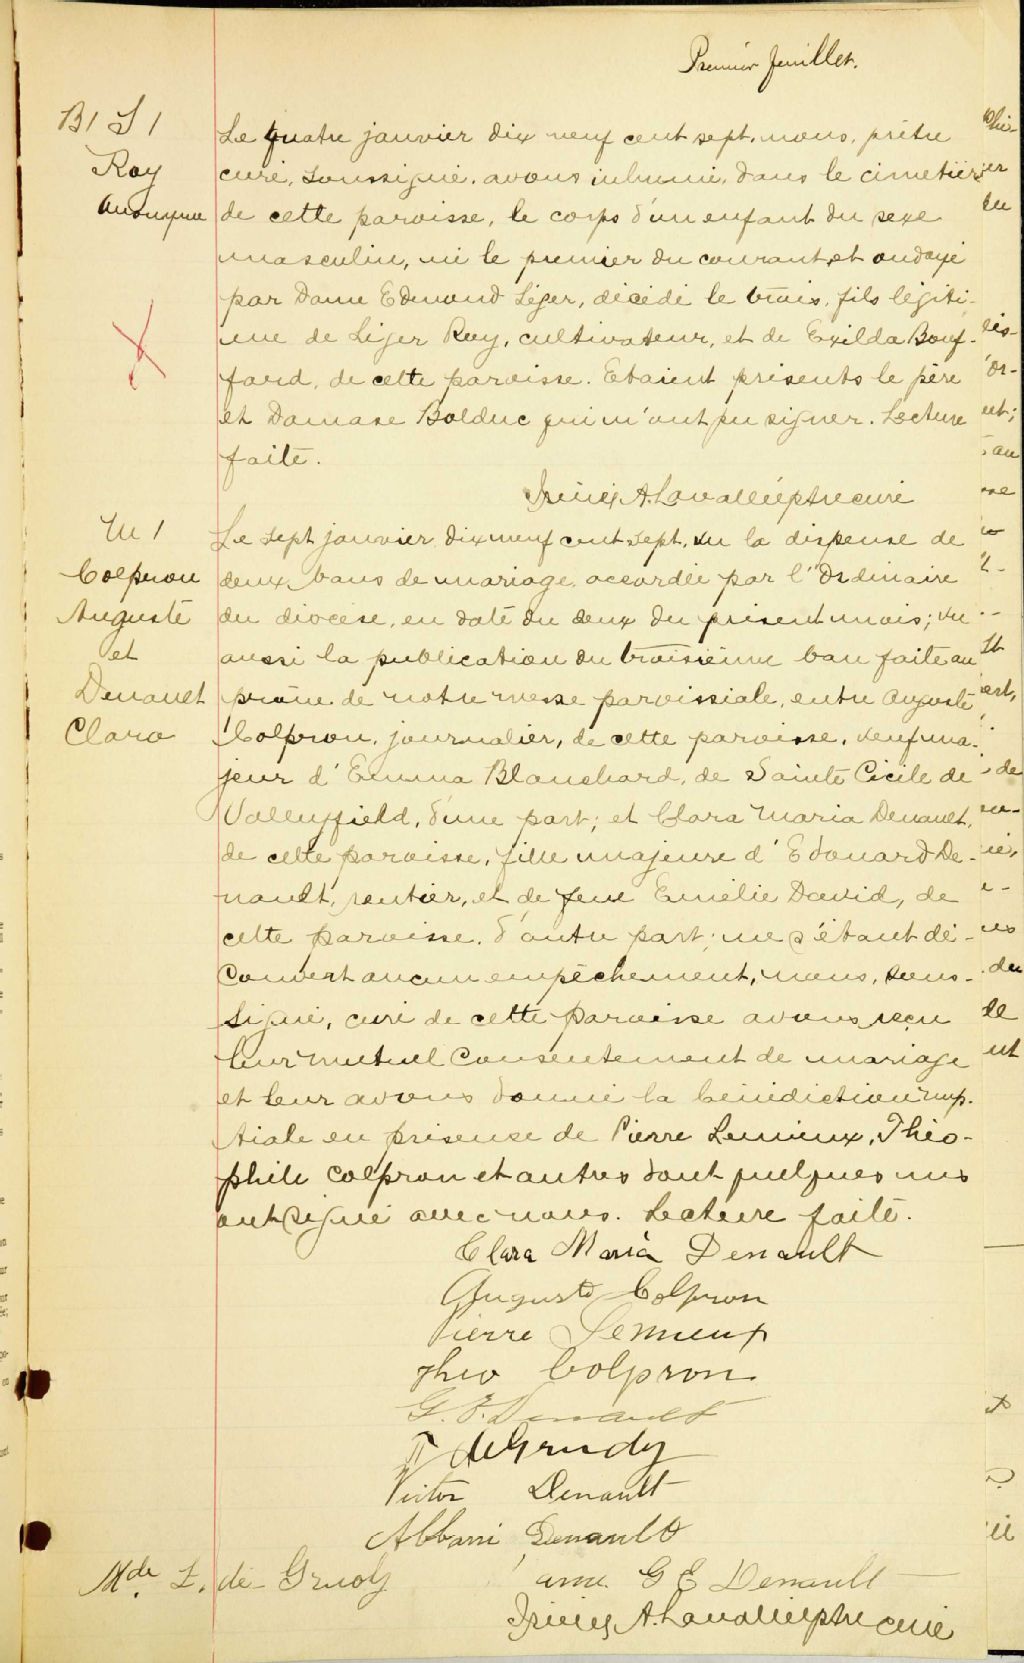 Premier feuillet.
B1 S1
Roy
Anonyme
Le quatre janvier dix neuf cent sept, nous, prêtre
curé, soussigné, avons inhumé, dans le cimetière
de cette paroisse, le corps d'un enfant du sexe
masculin, né le premier du courant, et ondoyé
par Dame Edmond Léger, décédé le trois, fils légiti-
me de Léger Roy, cultivateur, et de Exilda Bouf-
fard, de cette paroisse. Etaient présents le père
et Damase Bolduc qui n'ont pu signer. Lecture
faite.
Irénée A. Lavallée ptre curé
M1
Colpron
Auguste
et
Denault
Clara
Le sept janvier dix neuf cent sept, vu la dispense de
deux bans de mariage accordée par l'Ordinaire
du diocèse, en date du deux du présent mois; vu
aussi la publication du troisième ban faite au
prône de notre messe paroissiale, entre Auguste
Colpron, journalier, de cette paroisse, veuf ma-
jeur d'Emma Blanchard, de Sainte Cécile de
Valleyfield, d'une part; et Clara Maria Denault,
de cette paroisse, fille majeure d'Edouard De-
nault, rentier, et de feue Emélie David, de
cette paroisse, d'autre part; ne s'étant dé-
couvert aucun empêchement, nous, sous-
signé, curé de cette paroisse avons reçu
leur mutuel consentement de mariage
et leur avons donné la bénédiction nup-
tiale en présence de Pierre Lemieux, Théo-
phile Colpron et autres dont quelques uns
ont signé avec nous. Lecture faite.
Clara Maria Denault
Auguste Colpron
Pierre Lemieux
Theo Colpron
G. E. Denault
DeGrudy
Victor Denault
Denault
Mde L. de Grudy
G E Denault
Irénée A. Lavallée ptre curé